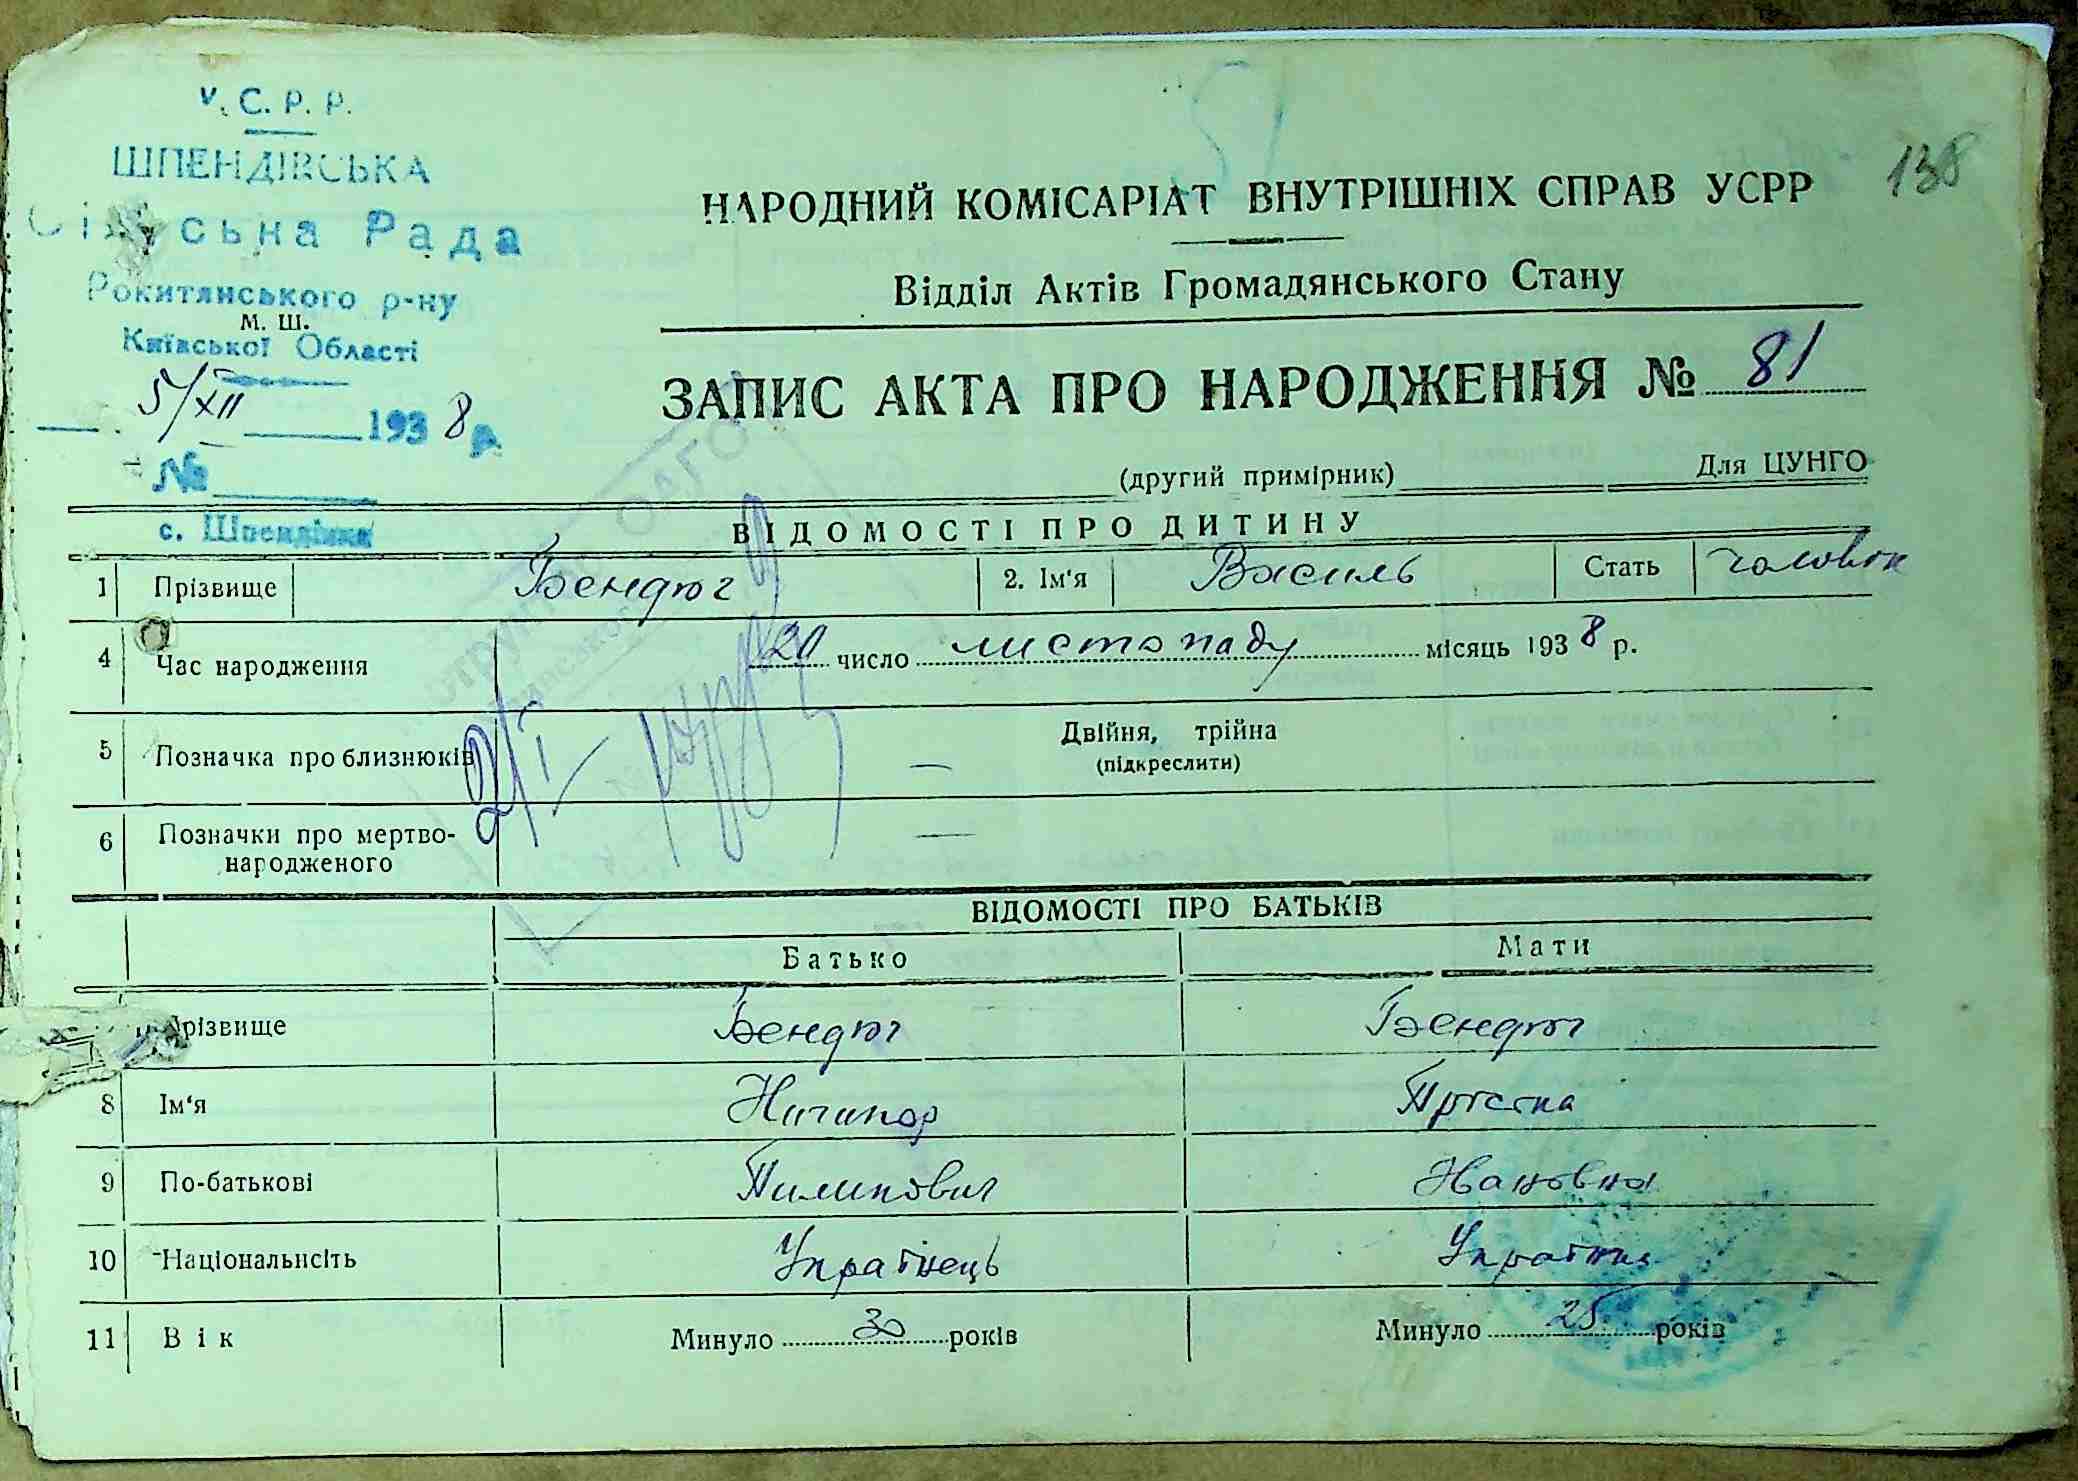 У. С. Р. Р.
ШПЕНДІВСЬКА
Сільська Рада
Рокитянського р-ну
М. Ш.
Київської Області
5/XII 1938 р.
№
с. Шпендівка
138
НАРОДНИЙ КОМІСАРІАТ ВНУТРІШНІХ СПРАВ УСРР
Відділ Актів Громадянського Стану
ЗАПИС АКТА ПРО НАРОДЖЕННЯ № 81
(другий примірник) Для ЦУНГО
ВІДОМОСТІ ПРО ДИТИНУ
1 Прізвище Бендюг 2. Ім'я Василь Стать чоловік
4 Час народження 20 число листопаду місяць 1938 р.
5 Позначка про близнюків — Двійня, трійна
(підкреслити)
6 Позначки про мертво-
народженого —
ВІДОМОСТІ ПРО БАТЬКІВ
Батько Мати
Прізвище Бендюг Бендюг
8 Ім'я Ничипор
9 По-батькові Пилипович
10 Національність Українець Українка
11 Вік Минуло 30 років Минуло 25 років